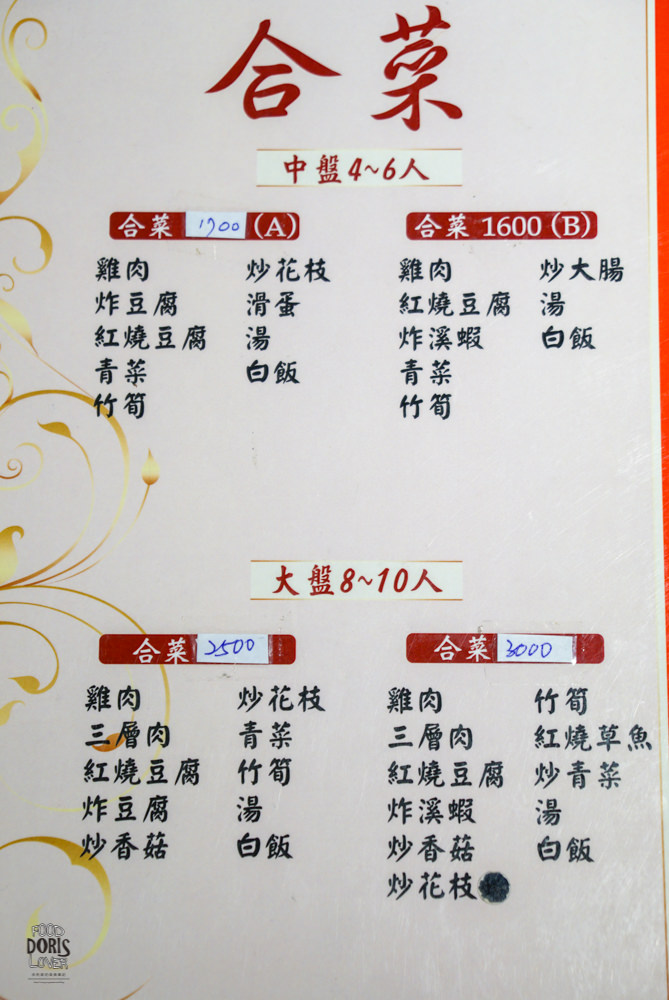 合菜
中盤4~6人
合菜 1700 (A)
雞肉
炸豆腐
紅燒豆腐
青菜
竹筍
炒花枝
滑蛋
湯
白飯
合菜 1600 (B)
雞肉
紅燒豆腐
炸溪蝦
青菜
竹筍
炒大腸
湯
白飯
大盤8~10人
合菜 2500
雞肉
三層肉
紅燒豆腐
炸豆腐
炒香菇
炒花枝
青菜
竹筍
湯
白飯
合菜 3000
雞肉
三層肉
紅燒豆腐
炸溪蝦
炒香菇
炒花枝
竹筍
紅燒草魚
炒青菜
湯
白飯
FOOD
DORIS
LOVER